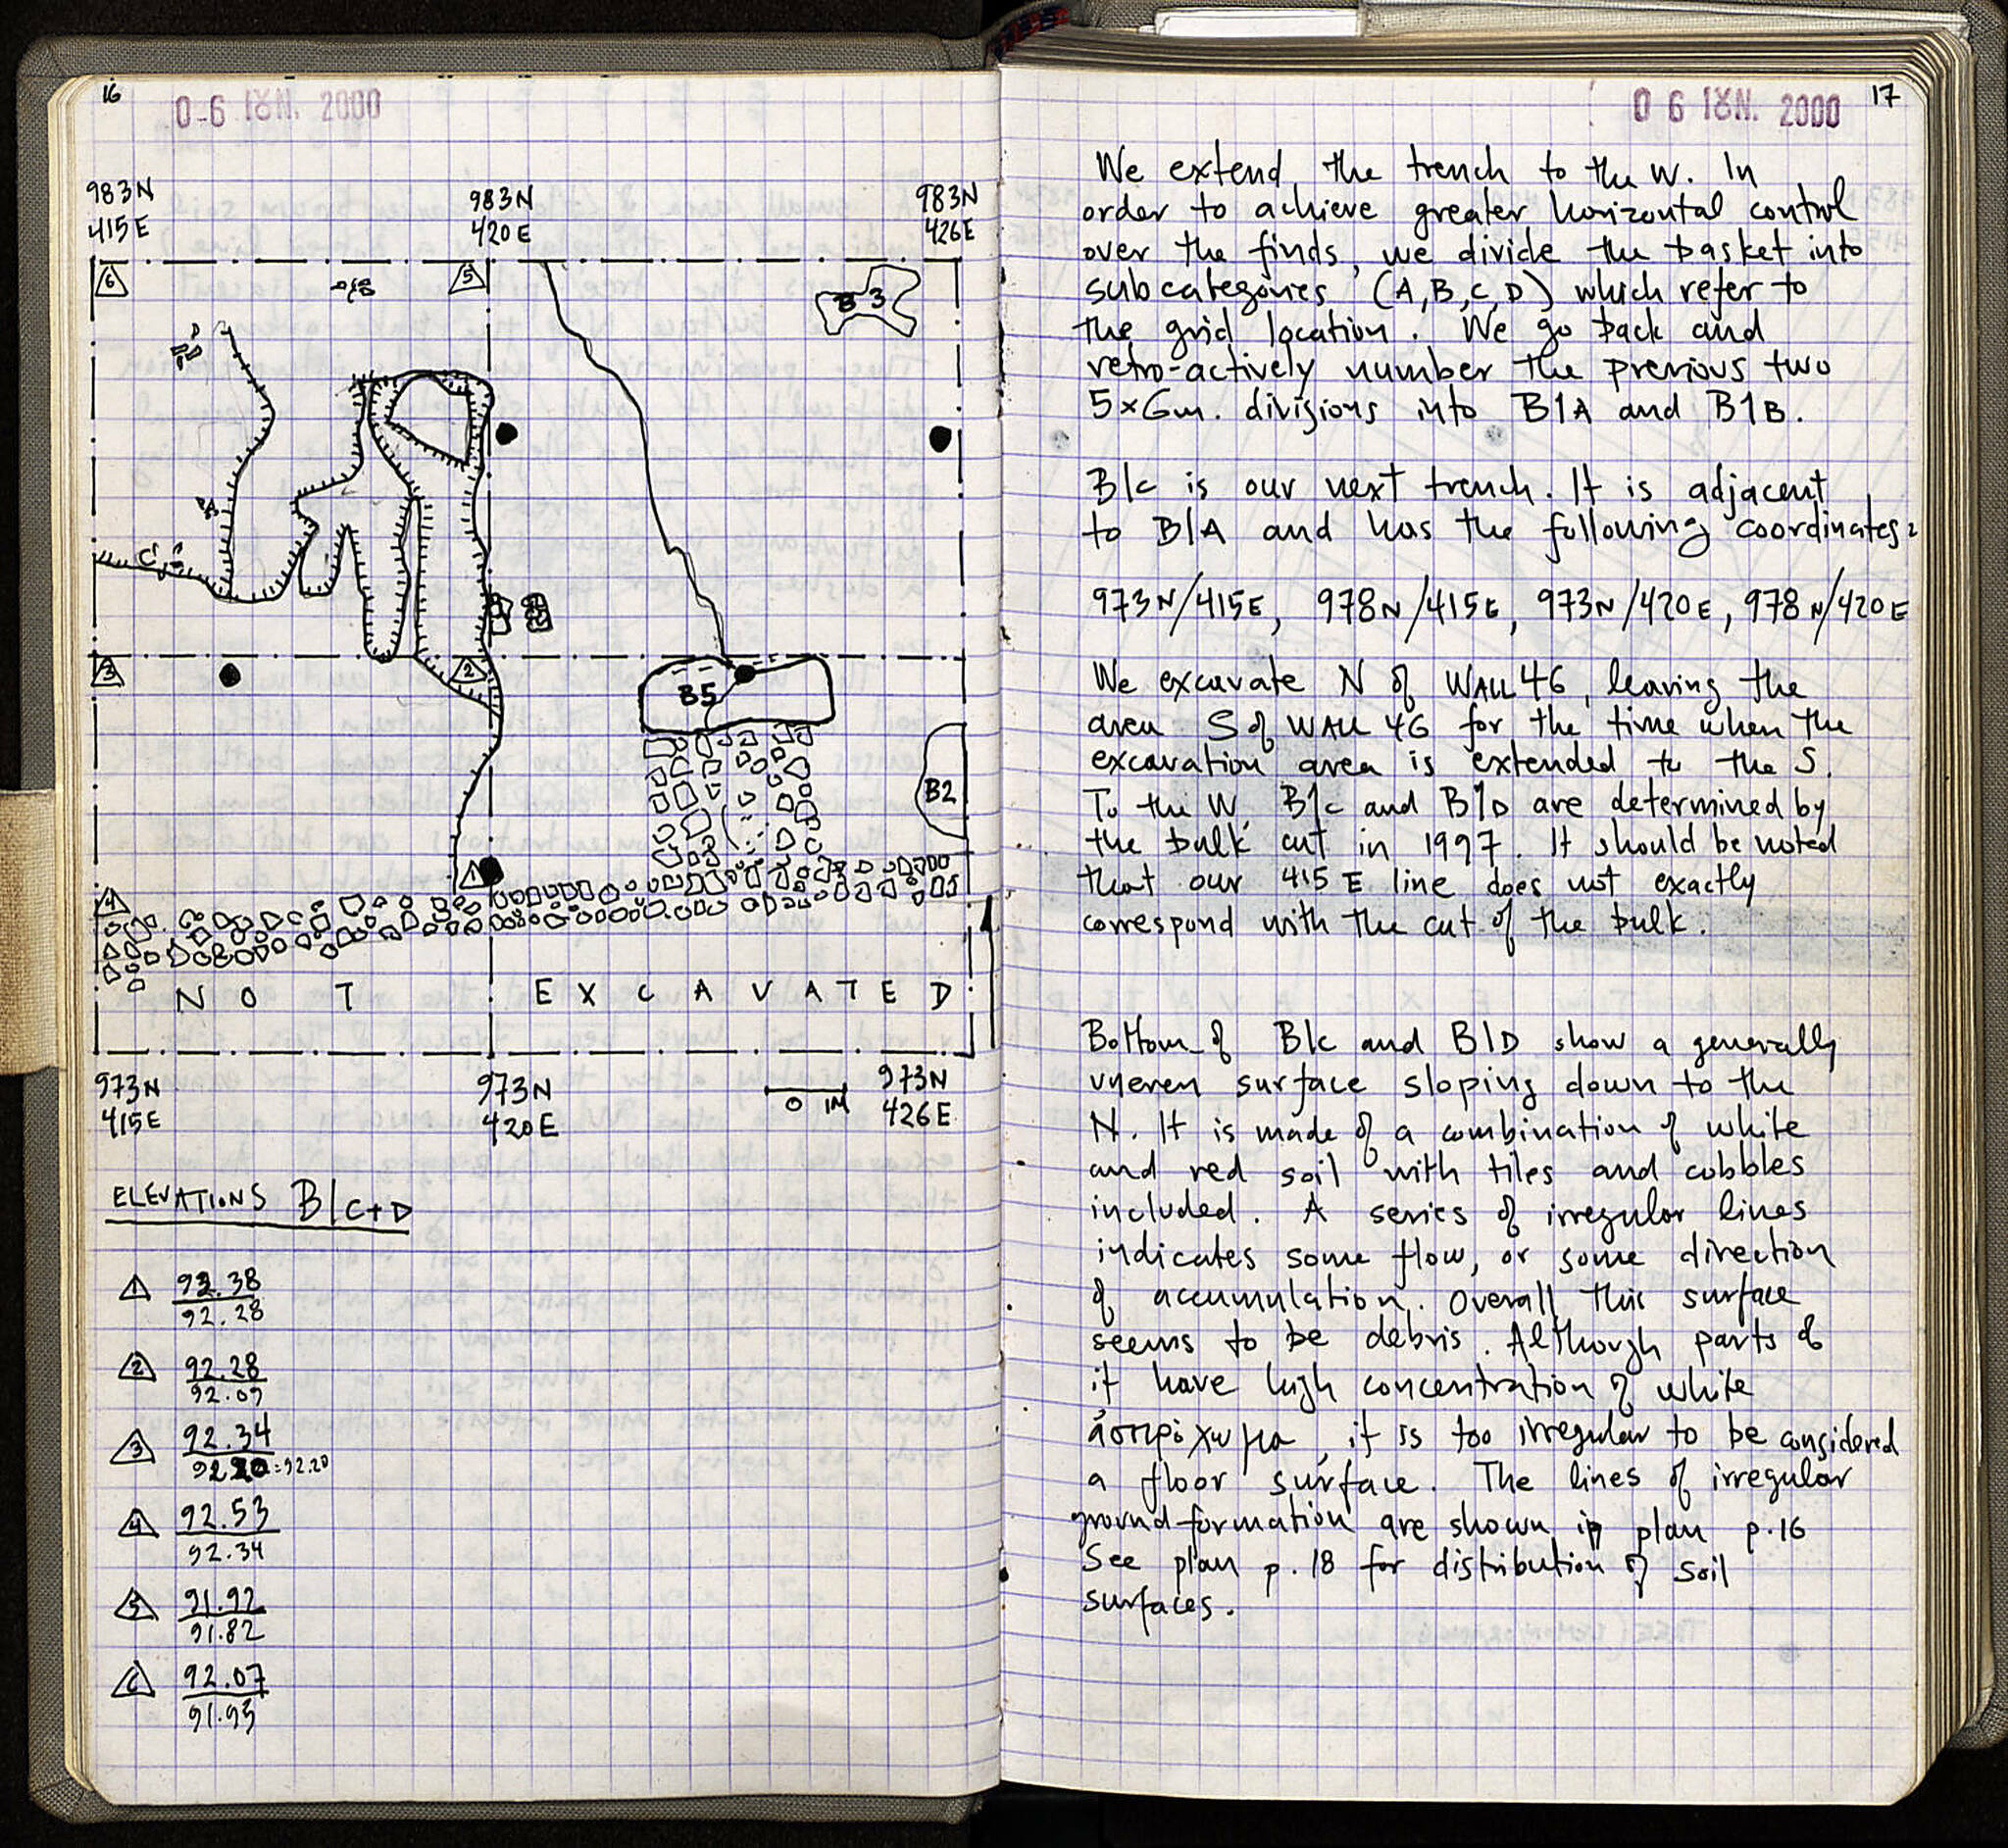 16
0-6 ΙȢΝ. 2000
983N
415E
983N
420E
983N
426E
6
5
B3
3
2
B5
B2
1
4
NOT EXCAVATED
973N
415E
973N
420E
0 1M
973N
426E
ELEVATIONS B1C+D
1 92.38
92.28
2 92.28
92.09
3 92.34
92.20 = 92.20
4 92.53
92.34
5 91.92
91.82
6 92.07
91.93
0 6 ΙȢΝ. 2000
17
We extend the trench to the W. In
order to achieve greater horizontal control
over the finds, we divide the basket into
subcategories (A,B,C,D) which refer to
the grid location. We go back and
retro-actively number the previous two
5x6m. divisions into B1A and B1B.
B1C is our next trench. It is adjacent
to B1A and has the following coordinates:
973N/415E, 978N/415E, 973N/420E, 978N/420E
We excavate N of WALL 46, leaving the
area S of WALL 46 for the time when the
excavation area is extended to the S.
To the W, B1C and B1D are determined by
the bulk cut in 1997. It should be noted
that our 415E line does not exactly
correspond with the cut of the bulk.
Bottom of B1C and B1D show a generally
uneven surface sloping down to the
N. It is made of a combination of white
and red soil with tiles and cobbles
included. A series of irregular lines
indicates some flow, or some direction
of accumulation. Overall this surface
seems to be debris. Although parts of
it have high concentration of white
άσπρόχωμα, it is too irregular to be considered
a floor surface. The lines of irregular
ground formation are shown in plan p.16
See plan p.18 for distribution of soil
surfaces.